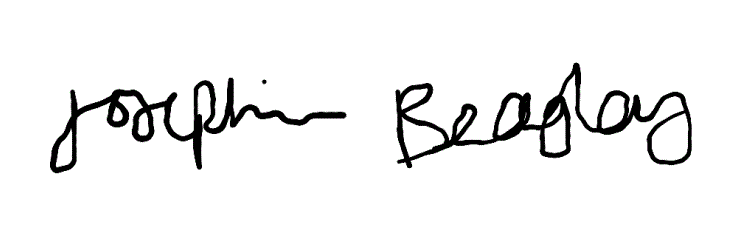 Josephin Beaglay